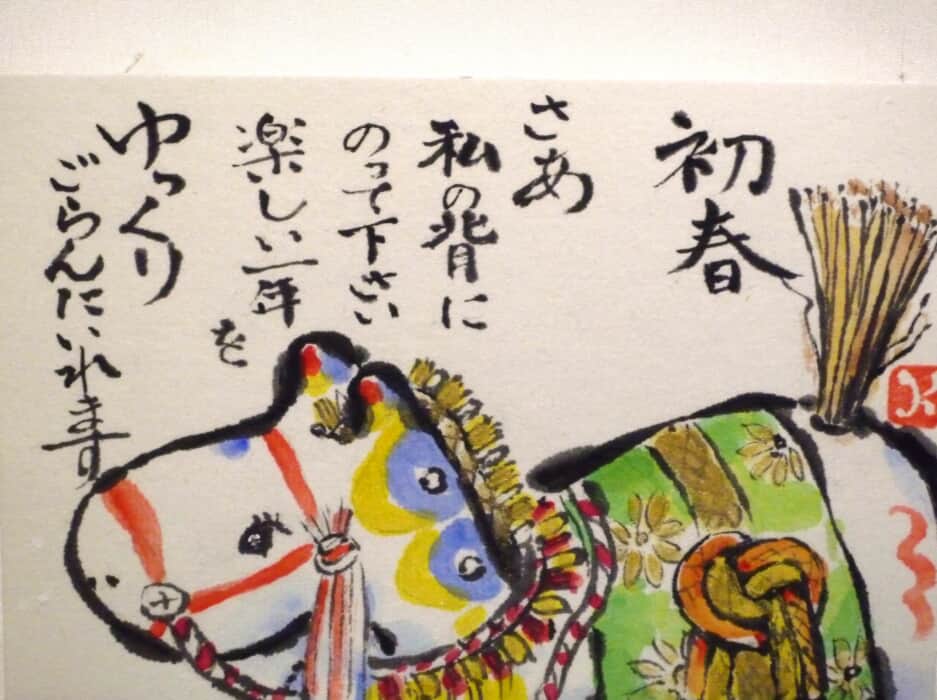 初春
さあ
私の背に
のって下さい
楽しい一年
を
ゆっくり
ごらんにいれます
K